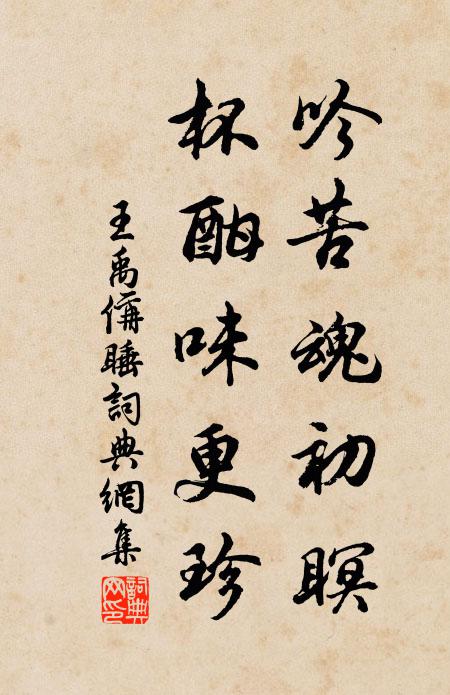 吟苦魂初瞑
杯酣味更珍
王禹偁睡詞典網集
詞典网印